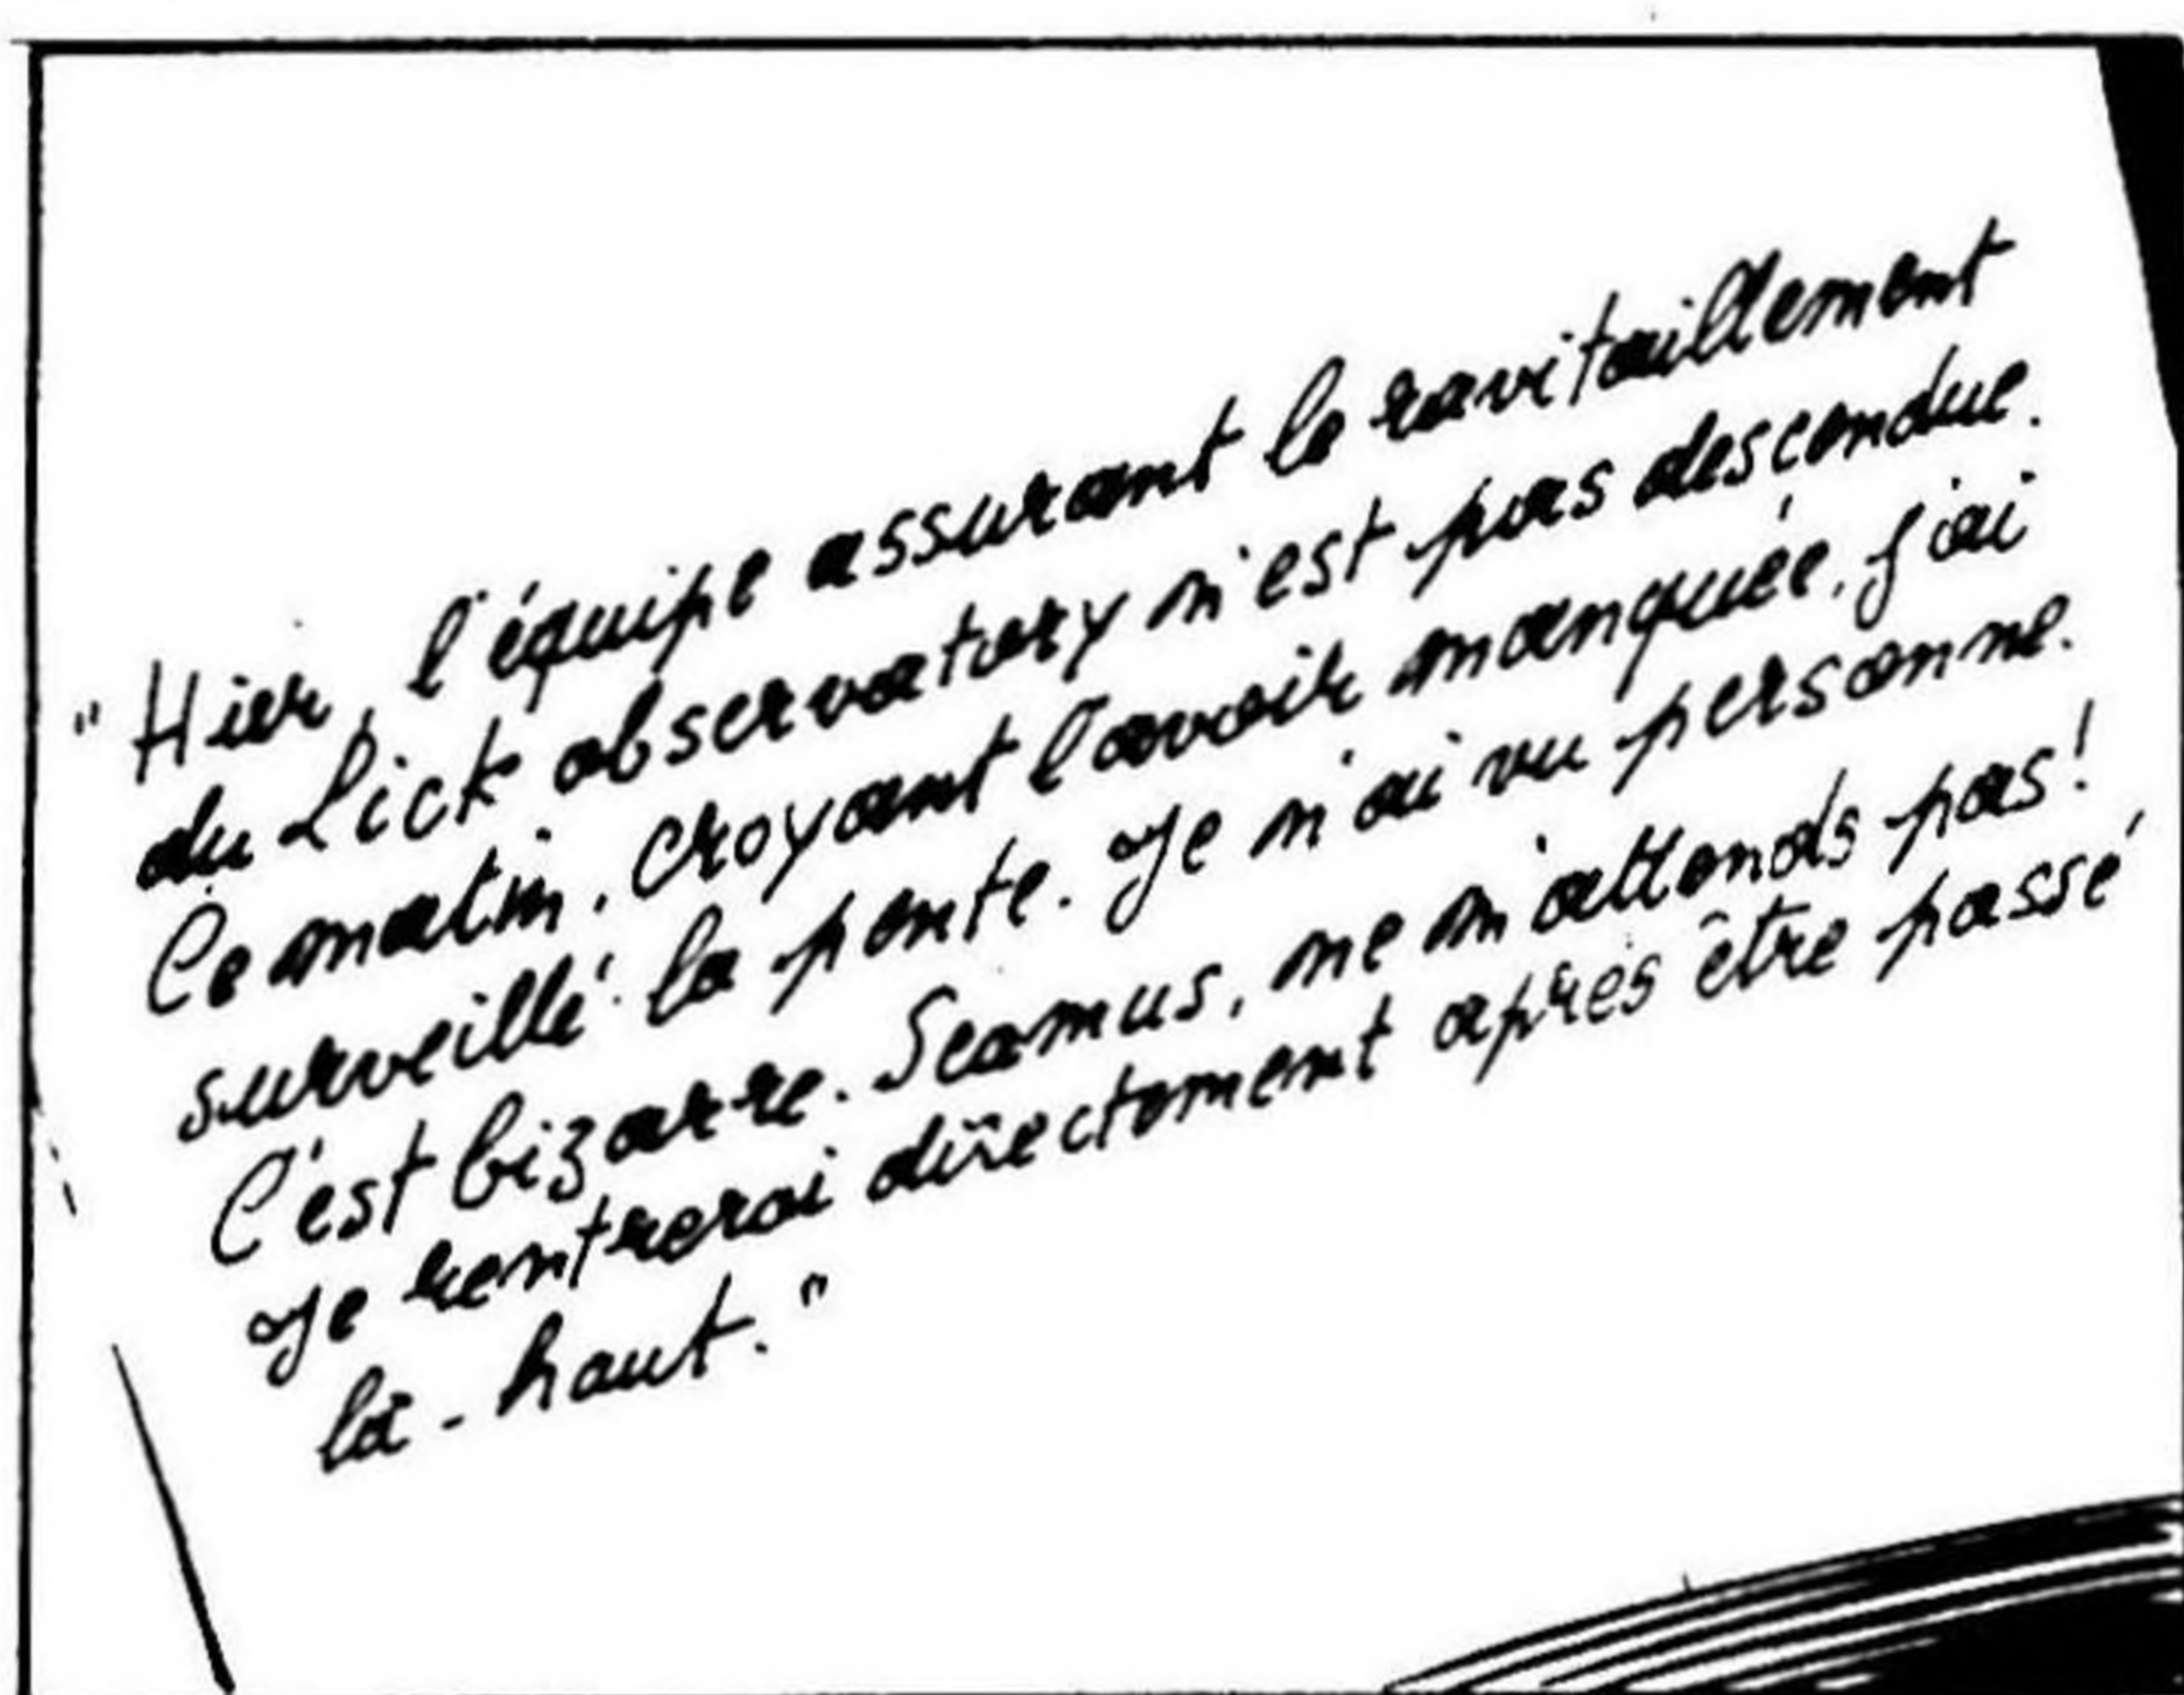 "Hier, l'équipe assurant le ravitaillement
du Lick observatory n'est pas descendue.
Ce matin, croyant l'avoir manquée, j'ai
surveillé la pente. Je n'ai vu personne.
C'est bizarre. Seamus, ne m'attends pas!
Je rentrerai directement après être passé
là-haut."